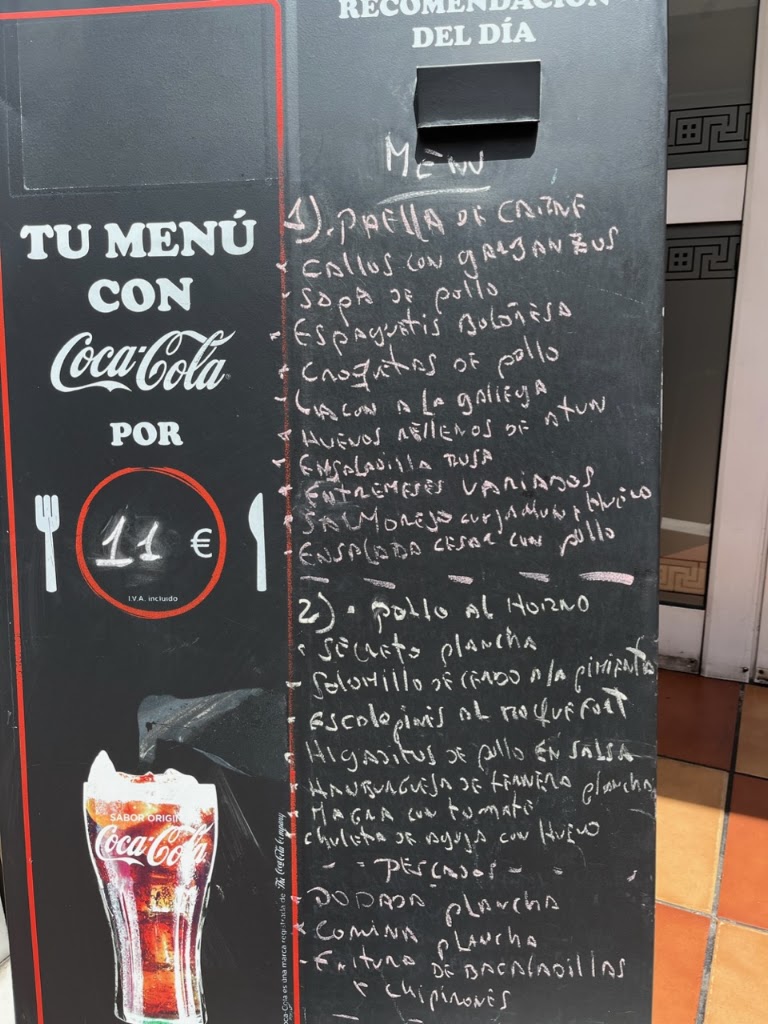 RECOMENDACIÓN
DEL DÍA
TU MENÚ
CON
Coca-Cola
POR
11 €
I.V.A. incluido
SABOR ORIGINAL
Coca-Cola
Coca-Cola es una marca registrada de The Coca-Cola Company
MENU
1). PAELLA DE CARNE
- CALLOS CON GARBANZOS
- SOPA DE POLLO
- ESPAGUETIS BOLOÑESA
- CROQUETAS DE POLLO
- LACON A LA GALLEGA
- HUEVOS RELLENOS DE ATUN
- ENSALADILLA RUSA
- ENTREMESES VARIADOS
- SALMOREJO CON JAMON Y HUEVO
- ENSALADA CESAR CON POLLO
2) - POLLO AL HORNO
- SECRETO PLANCHA
- SOLOMILLO DE CERDO A/A PIMIENTA
- ESCALOPINES AL ROQUEFORT
- HIGADITOS DE POLLO EN SALSA
- HAMBURGUESA DE TERNERA PLANCHA
- MAGRA CON TOMATE
- CHULETA DE AGUJA CON HUEVO
- - PESCADOS - -
- DORADA PLANCHA
- PLANCHA
- FRITURA DE BACALADILLAS
Y CHIPIRONES